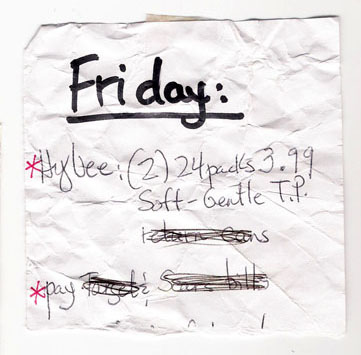 Friday:
*HyVee: (2) 24 packs 3.99
Soft-Gentle T.P.
return cans
*pay Target & Sears bills